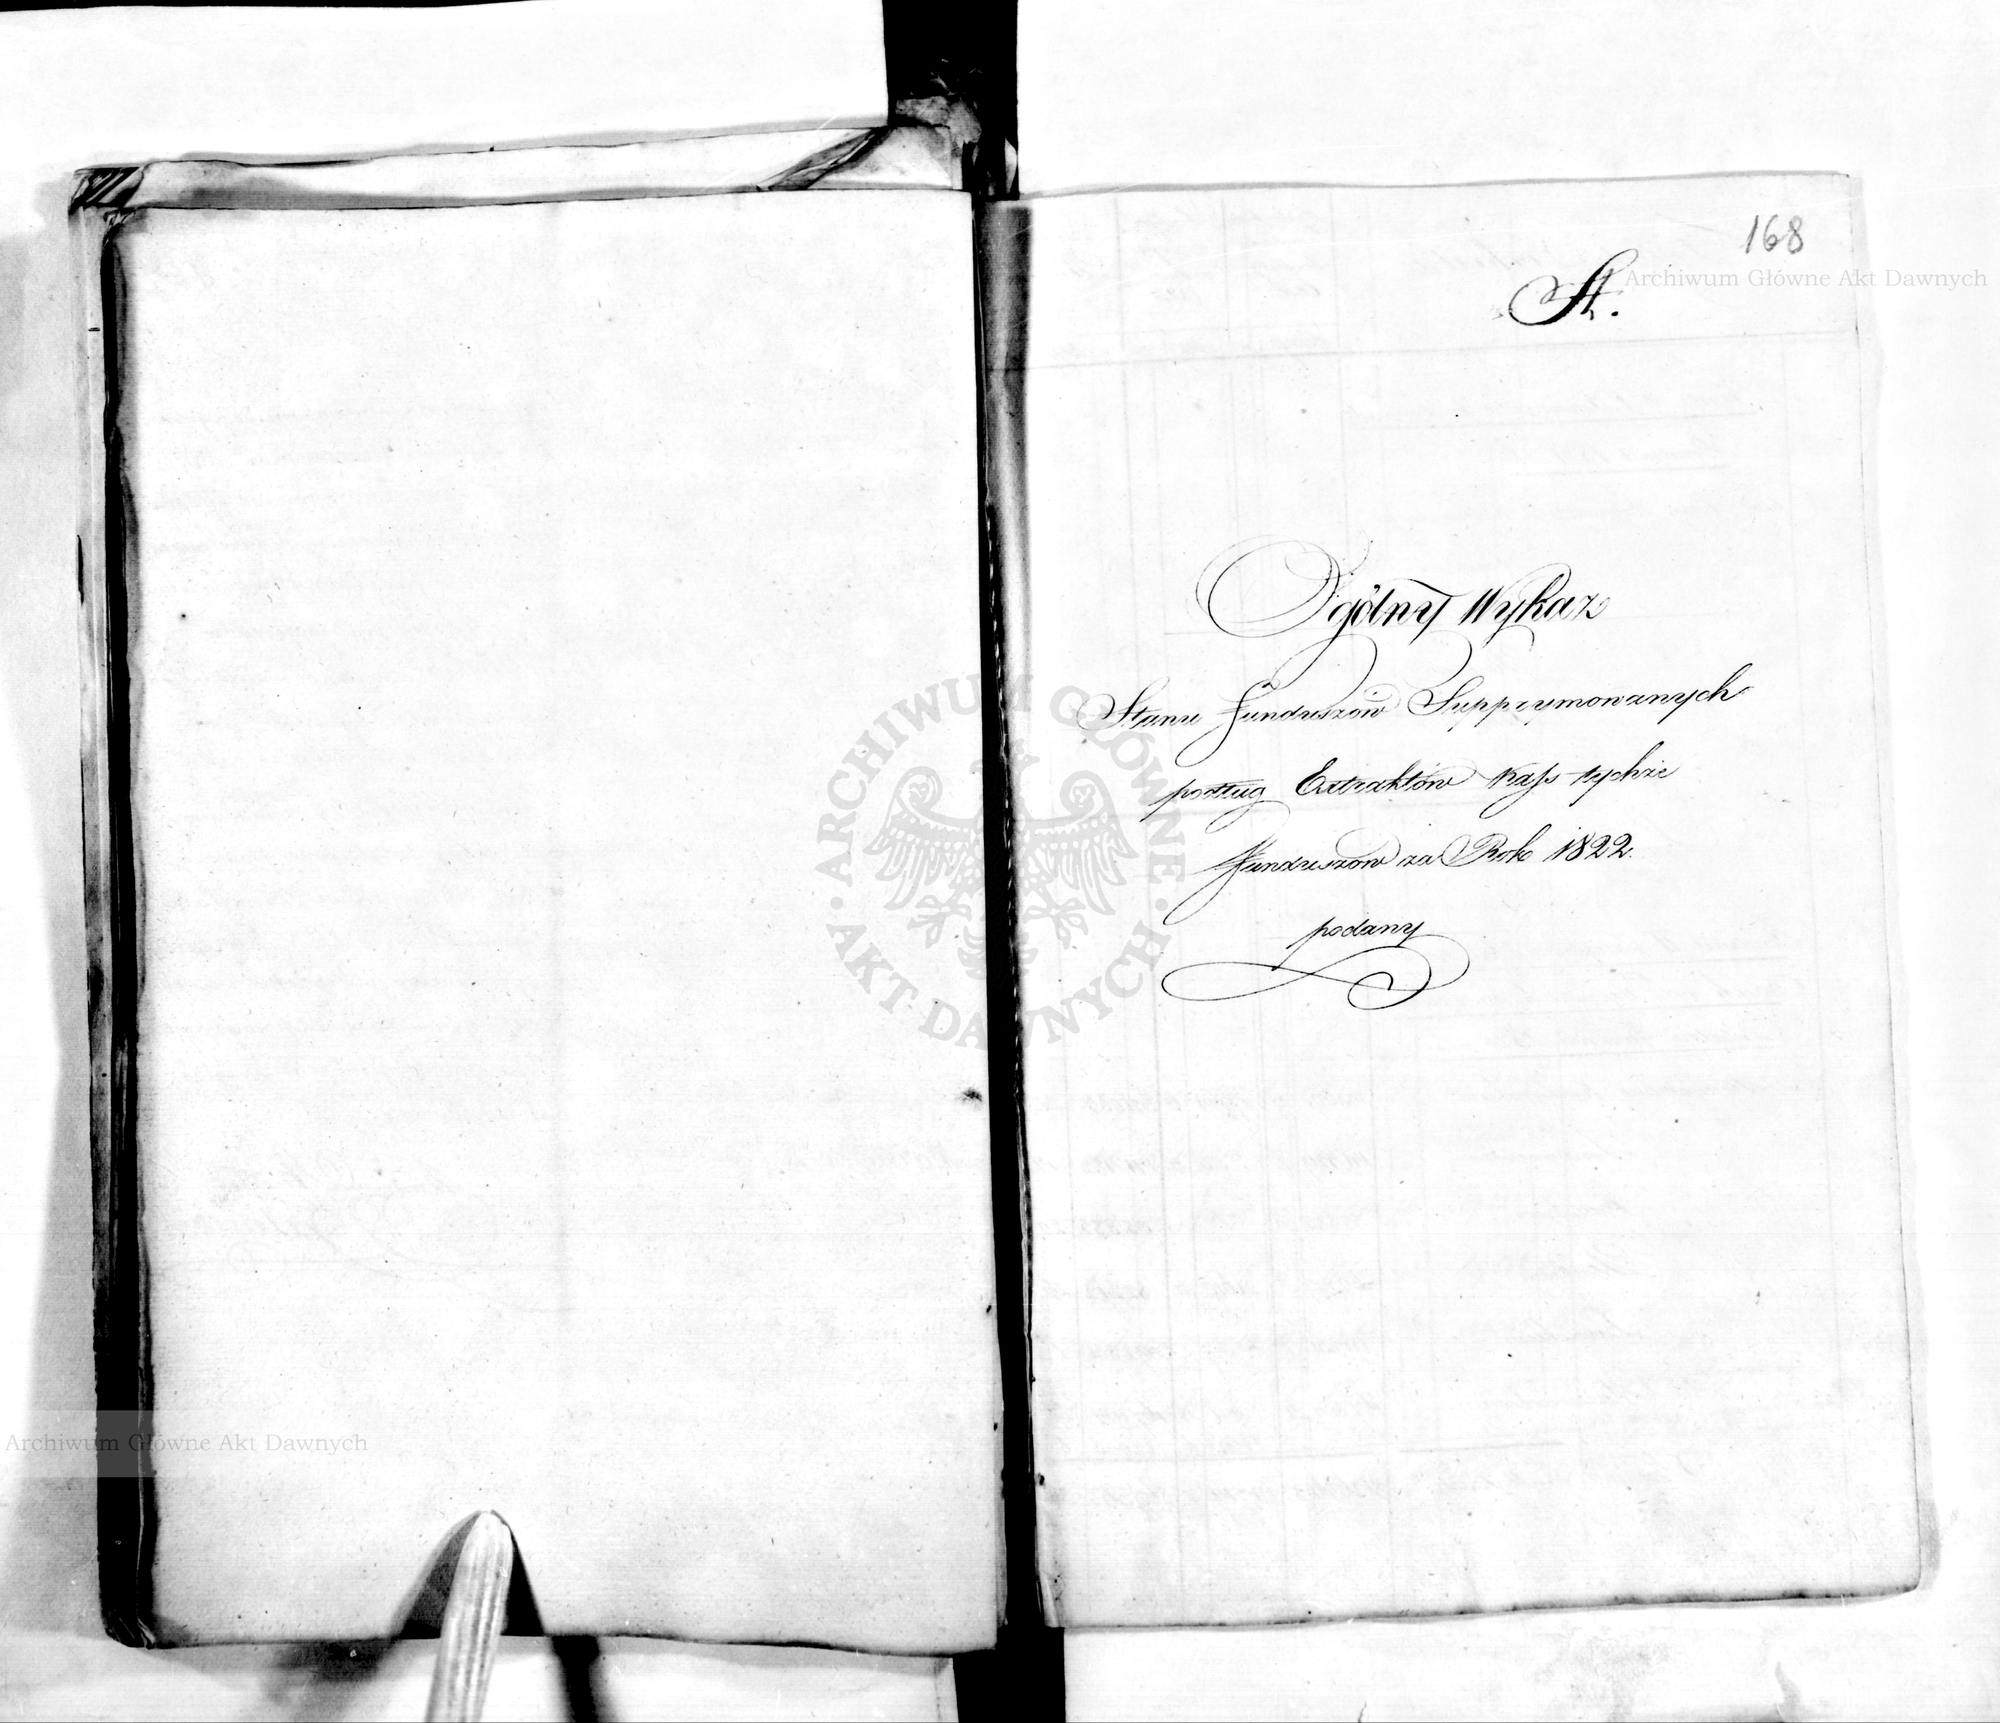 168
A.
Ogólny Wykaz
Stanu Funduszów Supprymowanych
podług Extraktów Kass tychże
Funduszów za Rok 1822.
podany
Archiwum Główne Akt Dawnych
ARCHIWUM GŁÓWNE
AKT DAWNYCH
Archiwum Główne Akt Dawnych